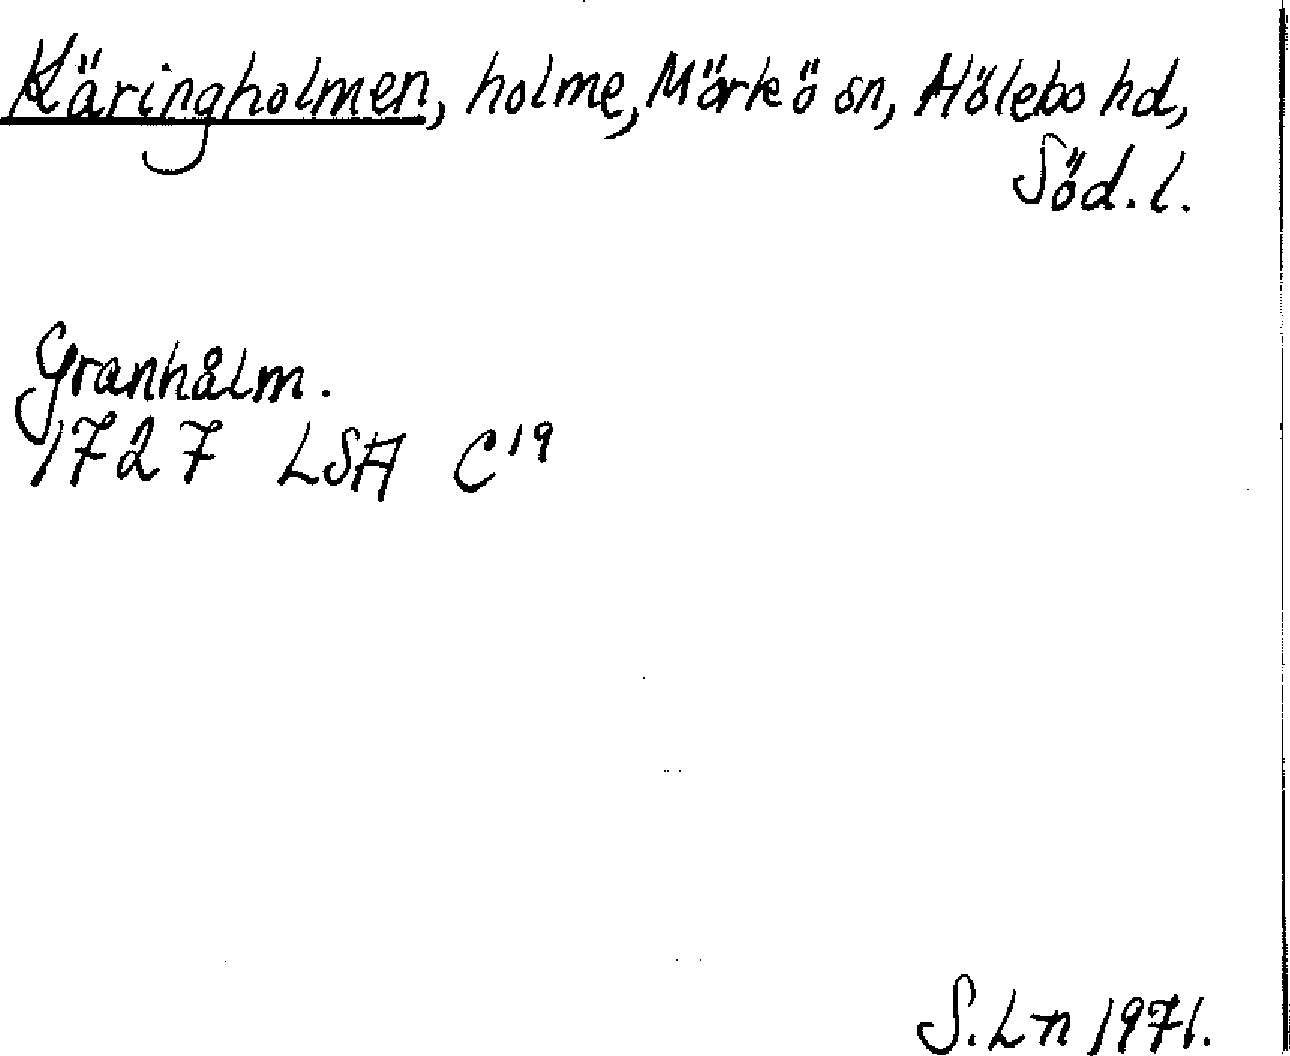 Käringholmen, holme, Mörkö sn, Hölebo hd,
Söd. l.
Granhålm.
1727 LSA C19
S. Ln 1971.